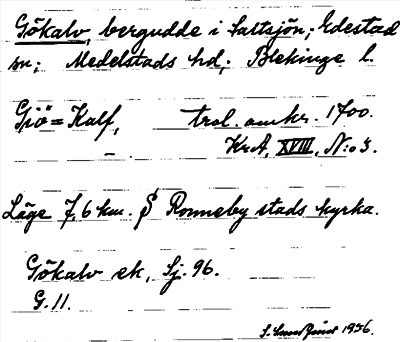 Gökalv, bergudde i Saltsjön; Edestad
sn; Medelstads hd; Blekinge l.
Giö=Kalf, trol. omkr. 1700.
KrA, XVIII, N:o 3.
Läge 7,6 km. S Ronneby stads kyrka.
Gökalv ek, Sj. 96.
G. 11.
1936.